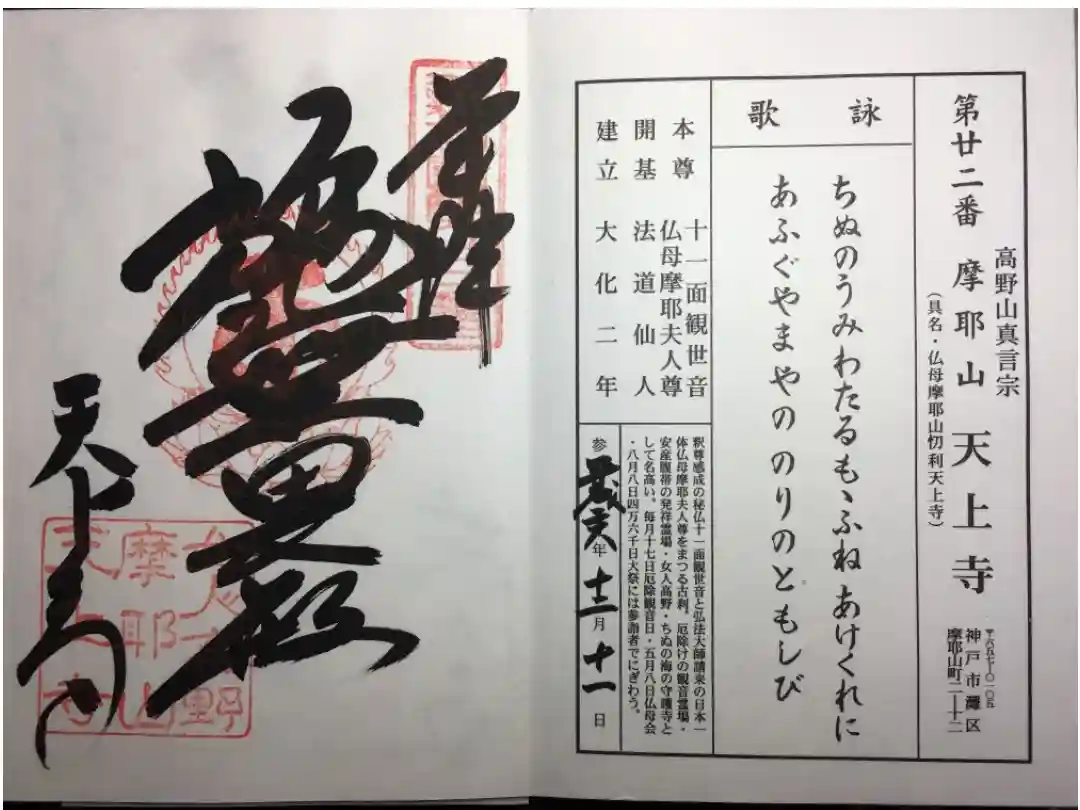 高野山真言宗
第廿二番 摩耶山 天上寺
（具名・仏母摩耶山忉利天上寺）
〒六五七-〇一〇五
神戸市灘区
摩耶山町二―十二
詠歌
ちぬのうみわたるもゝふね あけくれに
あふぐやまやの のりのともしび
本尊 十一面観世音
仏母摩耶夫人尊
開基 法道仙人
建立 大化二年
釈尊感成の秘仏十一面観世音と弘法大師請来の日本一
体仏母摩耶夫人尊をまつる古刹。厄除けの観音霊場・
安産腹帯の発祥霊場・女人高野・ちぬの海の守護寺と
して名高い。毎月十七日厄除観音日・五月八日仏母会
・八月八日四万六千日大祭には参詣者でにぎわう。
参 年 十二月 十一日
奉拝
天上寺
摩耶山